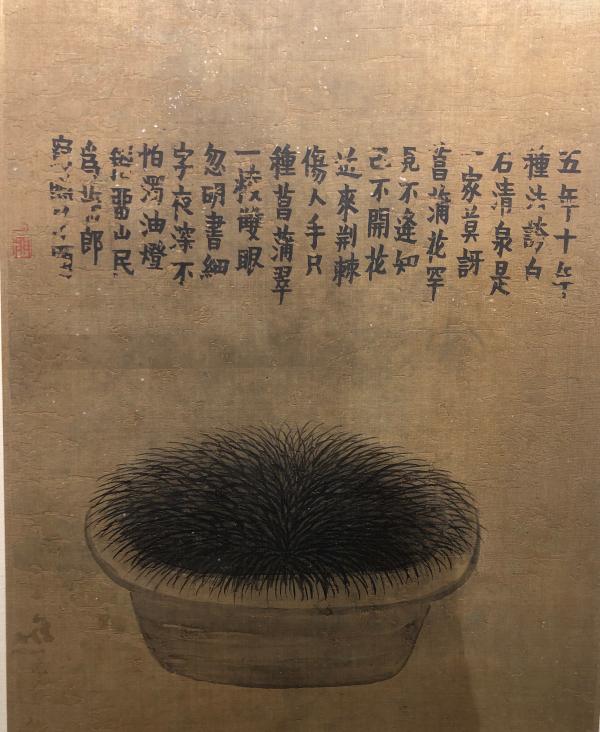 五年十年
種法白
石清泉是
一家莫訝
菖蒲花罕
見不逢知
己不開花
近來荊棘
傷人手只
種菖蒲翠
一雙眼
忽明書細
字夜深不
怕濁油燈
留山民
郎